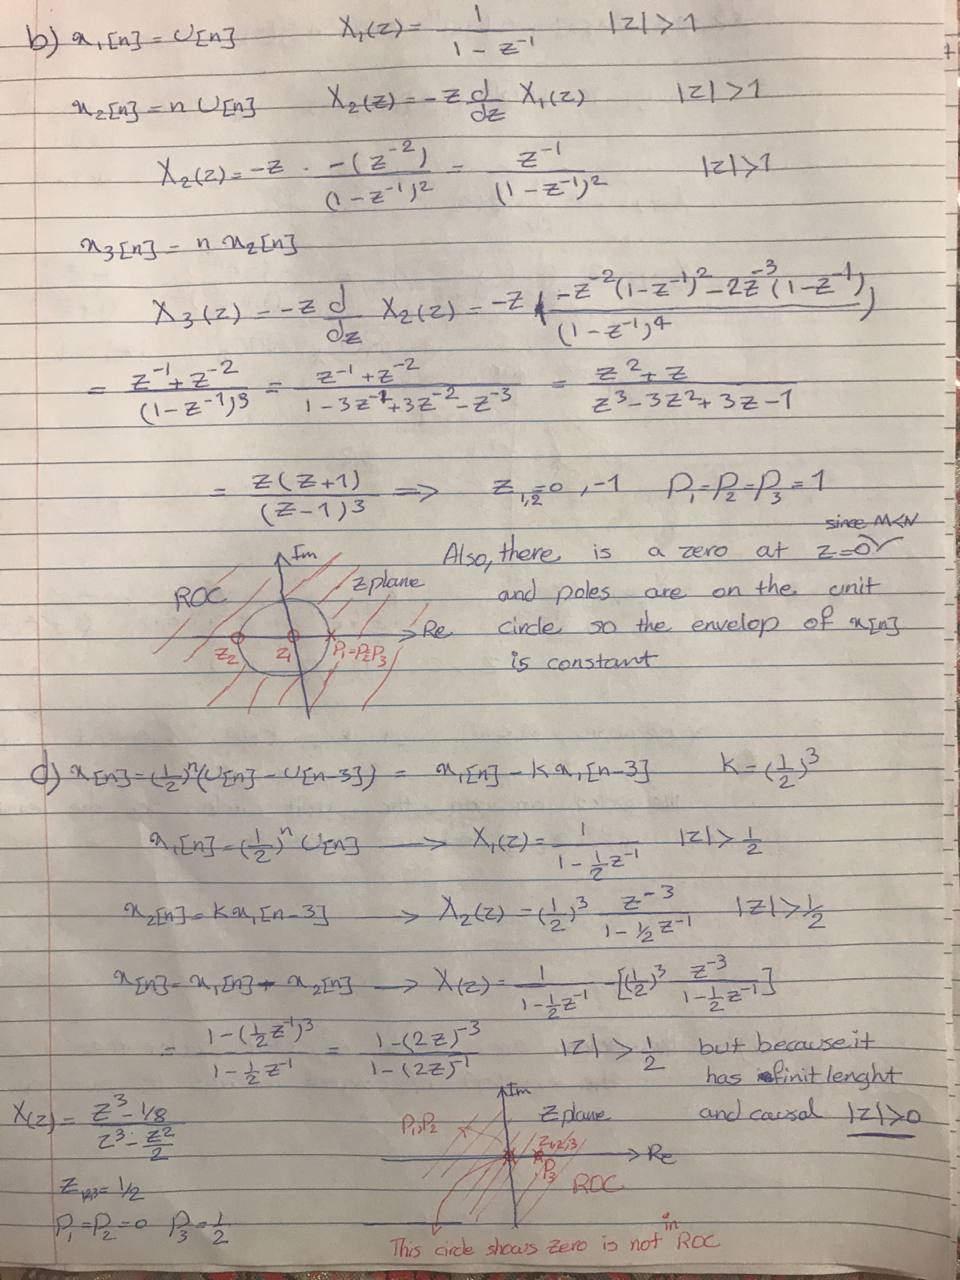 b) x₁[n] = U[n] X₁(z) = 1/(1 - z⁻¹) |z| > 1
x₂[n] = n U[n] X₂(z) = -z d/dz X₁(z) |z| > 1
X₂(z) = -z · -(z⁻²)/(1 - z⁻¹)² = z⁻¹/(1 - z⁻¹)² |z| > 1
x₃[n] = n x₂[n]
X₃(z) = -z d/dz X₂(z) = -z (-z⁻²(1 - z⁻¹)² - 2z⁻³(1 - z⁻¹)/(1 - z⁻¹)⁴)
= (z⁻¹ + z⁻²)/(1 - z⁻¹)³ = (z⁻¹ + z⁻²)/(1 - 3z⁻¹ + 3z⁻² - z⁻³) = (z² + z)/(z³ - 3z² + 3z - 1)
= z(z+1)/(z-1)³ ⟹ z₁,₂ = 0, -1 P₁ = P₂ = P₃ = 1
since M<N
Also, there is a zero at z=0
and poles are on the unit
circle so the envelop of x[n]
is constant
Im
ROC z plane
Re
z₂ z₁ P₁=P₂P₃
d) x[n] = (1/2)ⁿ(U[n] - U[n-3]) = x₁[n] - k x₁[n-3] k = (1/2)³
x₁[n] = (1/2)ⁿ U[n] → X₁(z) = 1/(1 - 1/2 z⁻¹) |z| > 1/2
x₂[n] = k x₁[n-3] → X₂(z) = (1/2)³ z⁻³/(1 - 1/2 z⁻¹) |z| > 1/2
x[n] = x₁[n] - x₂[n] → X(z) = 1/(1 - 1/2 z⁻¹) - [(1/2)³ z⁻³/(1 - 1/2 z⁻¹)]
= (1 - (1/2 z⁻¹)³)/(1 - 1/2 z⁻¹) = (1 - (2z)⁻³)/(1 - (2z)⁻¹) |z| > 1/2 but because it
has finit lenght
and causal |z|>0
X(z) = (z³ - 1/8)/(z³ - z²/2)
z₁,₂,₃ = 1/2
P₁ = P₂ = 0 P₃ = 1/2
Im
z plane
P₁,P₂ z₁,₂,₃
Re
P₃
ROC
This circle shows zero is not in ROC